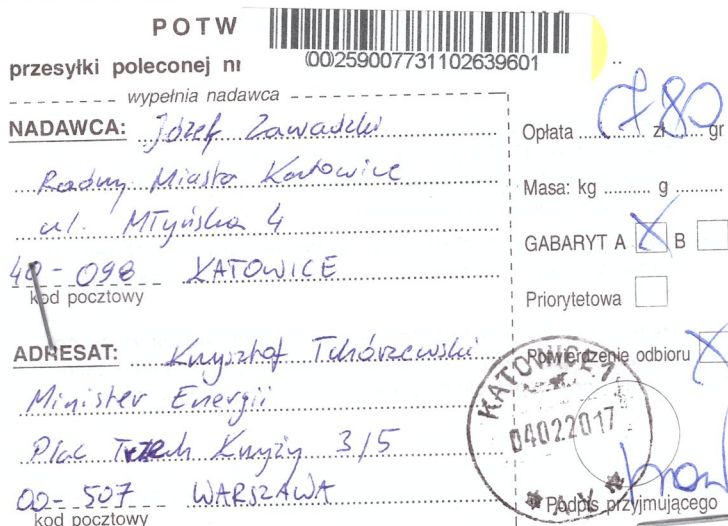 POTW
przesyłki poleconej nr
(00)259007731102639601
wypełnia nadawca
NADAWCA: Józef Zawadzki
Radny Miasta Katowice
ul. Młyńska 4
40-098 KATOWICE
kod pocztowy
ADRESAT: Krzysztof Tchórzewski
Minister Energii
Plac Trzech Krzyży 3/5
00-507 WARSZAWA
kod pocztowy
Opłata 7 80 zł gr
Masa: kg g
GABARYT A B
Priorytetowa
Potwierdzenie odbioru
KATOWICE 1
04022017
* AY *
Podpis przyjmującego